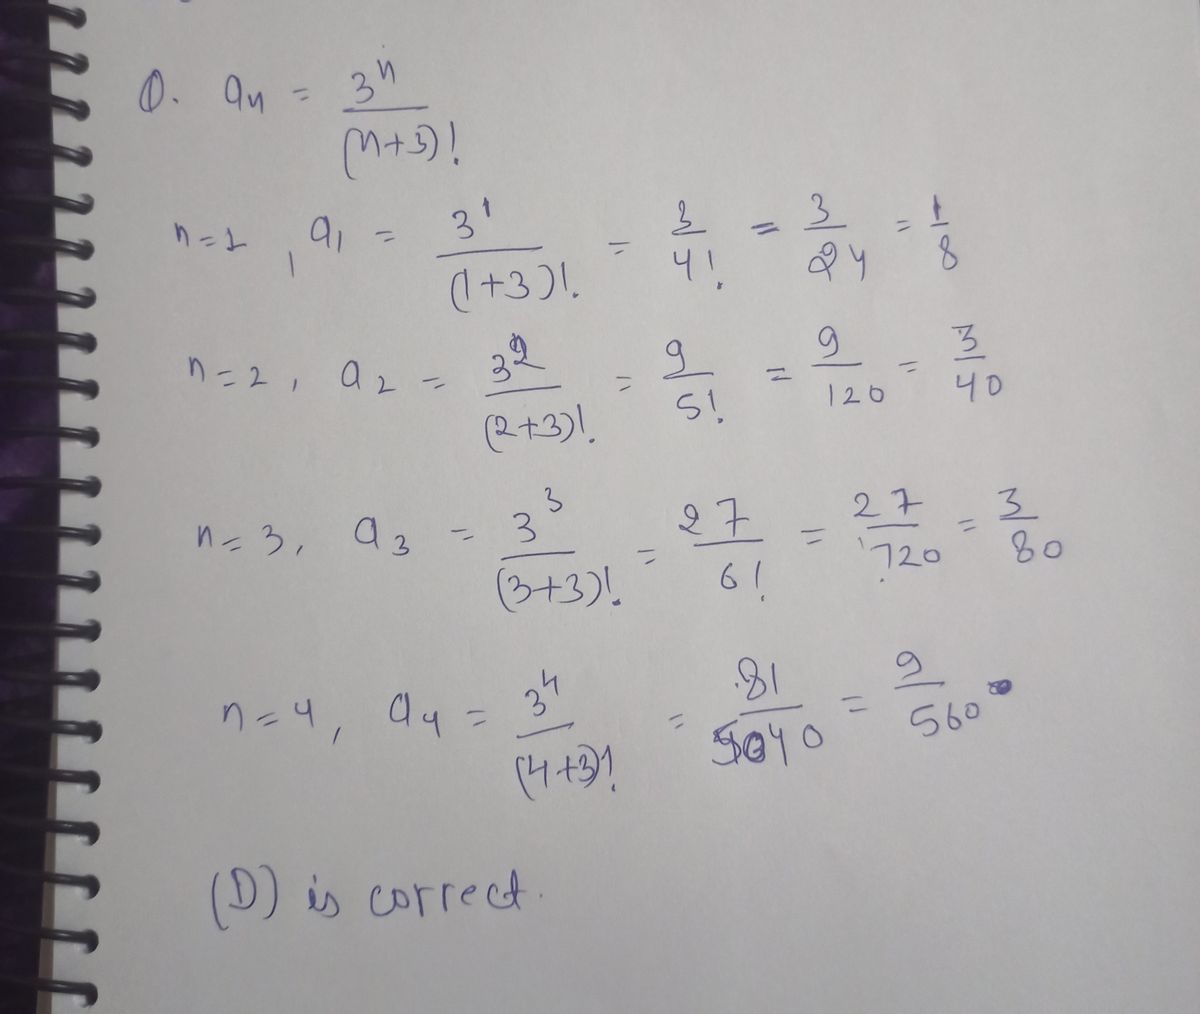 Q. an = 3^n/(n+3)!
n=1, a1 = 3^1/(1+3)! = 3/4! = 3/24 = 1/8
n=2, a2 = 3^2/(2+3)! = 9/5! = 9/120 = 3/40
n=3, a3 = 3^3/(3+3)! = 27/6! = 27/720 = 3/80
n=4, a4 = 3^4/(4+3)! = 81/5040 = 9/560
(D) is correct.